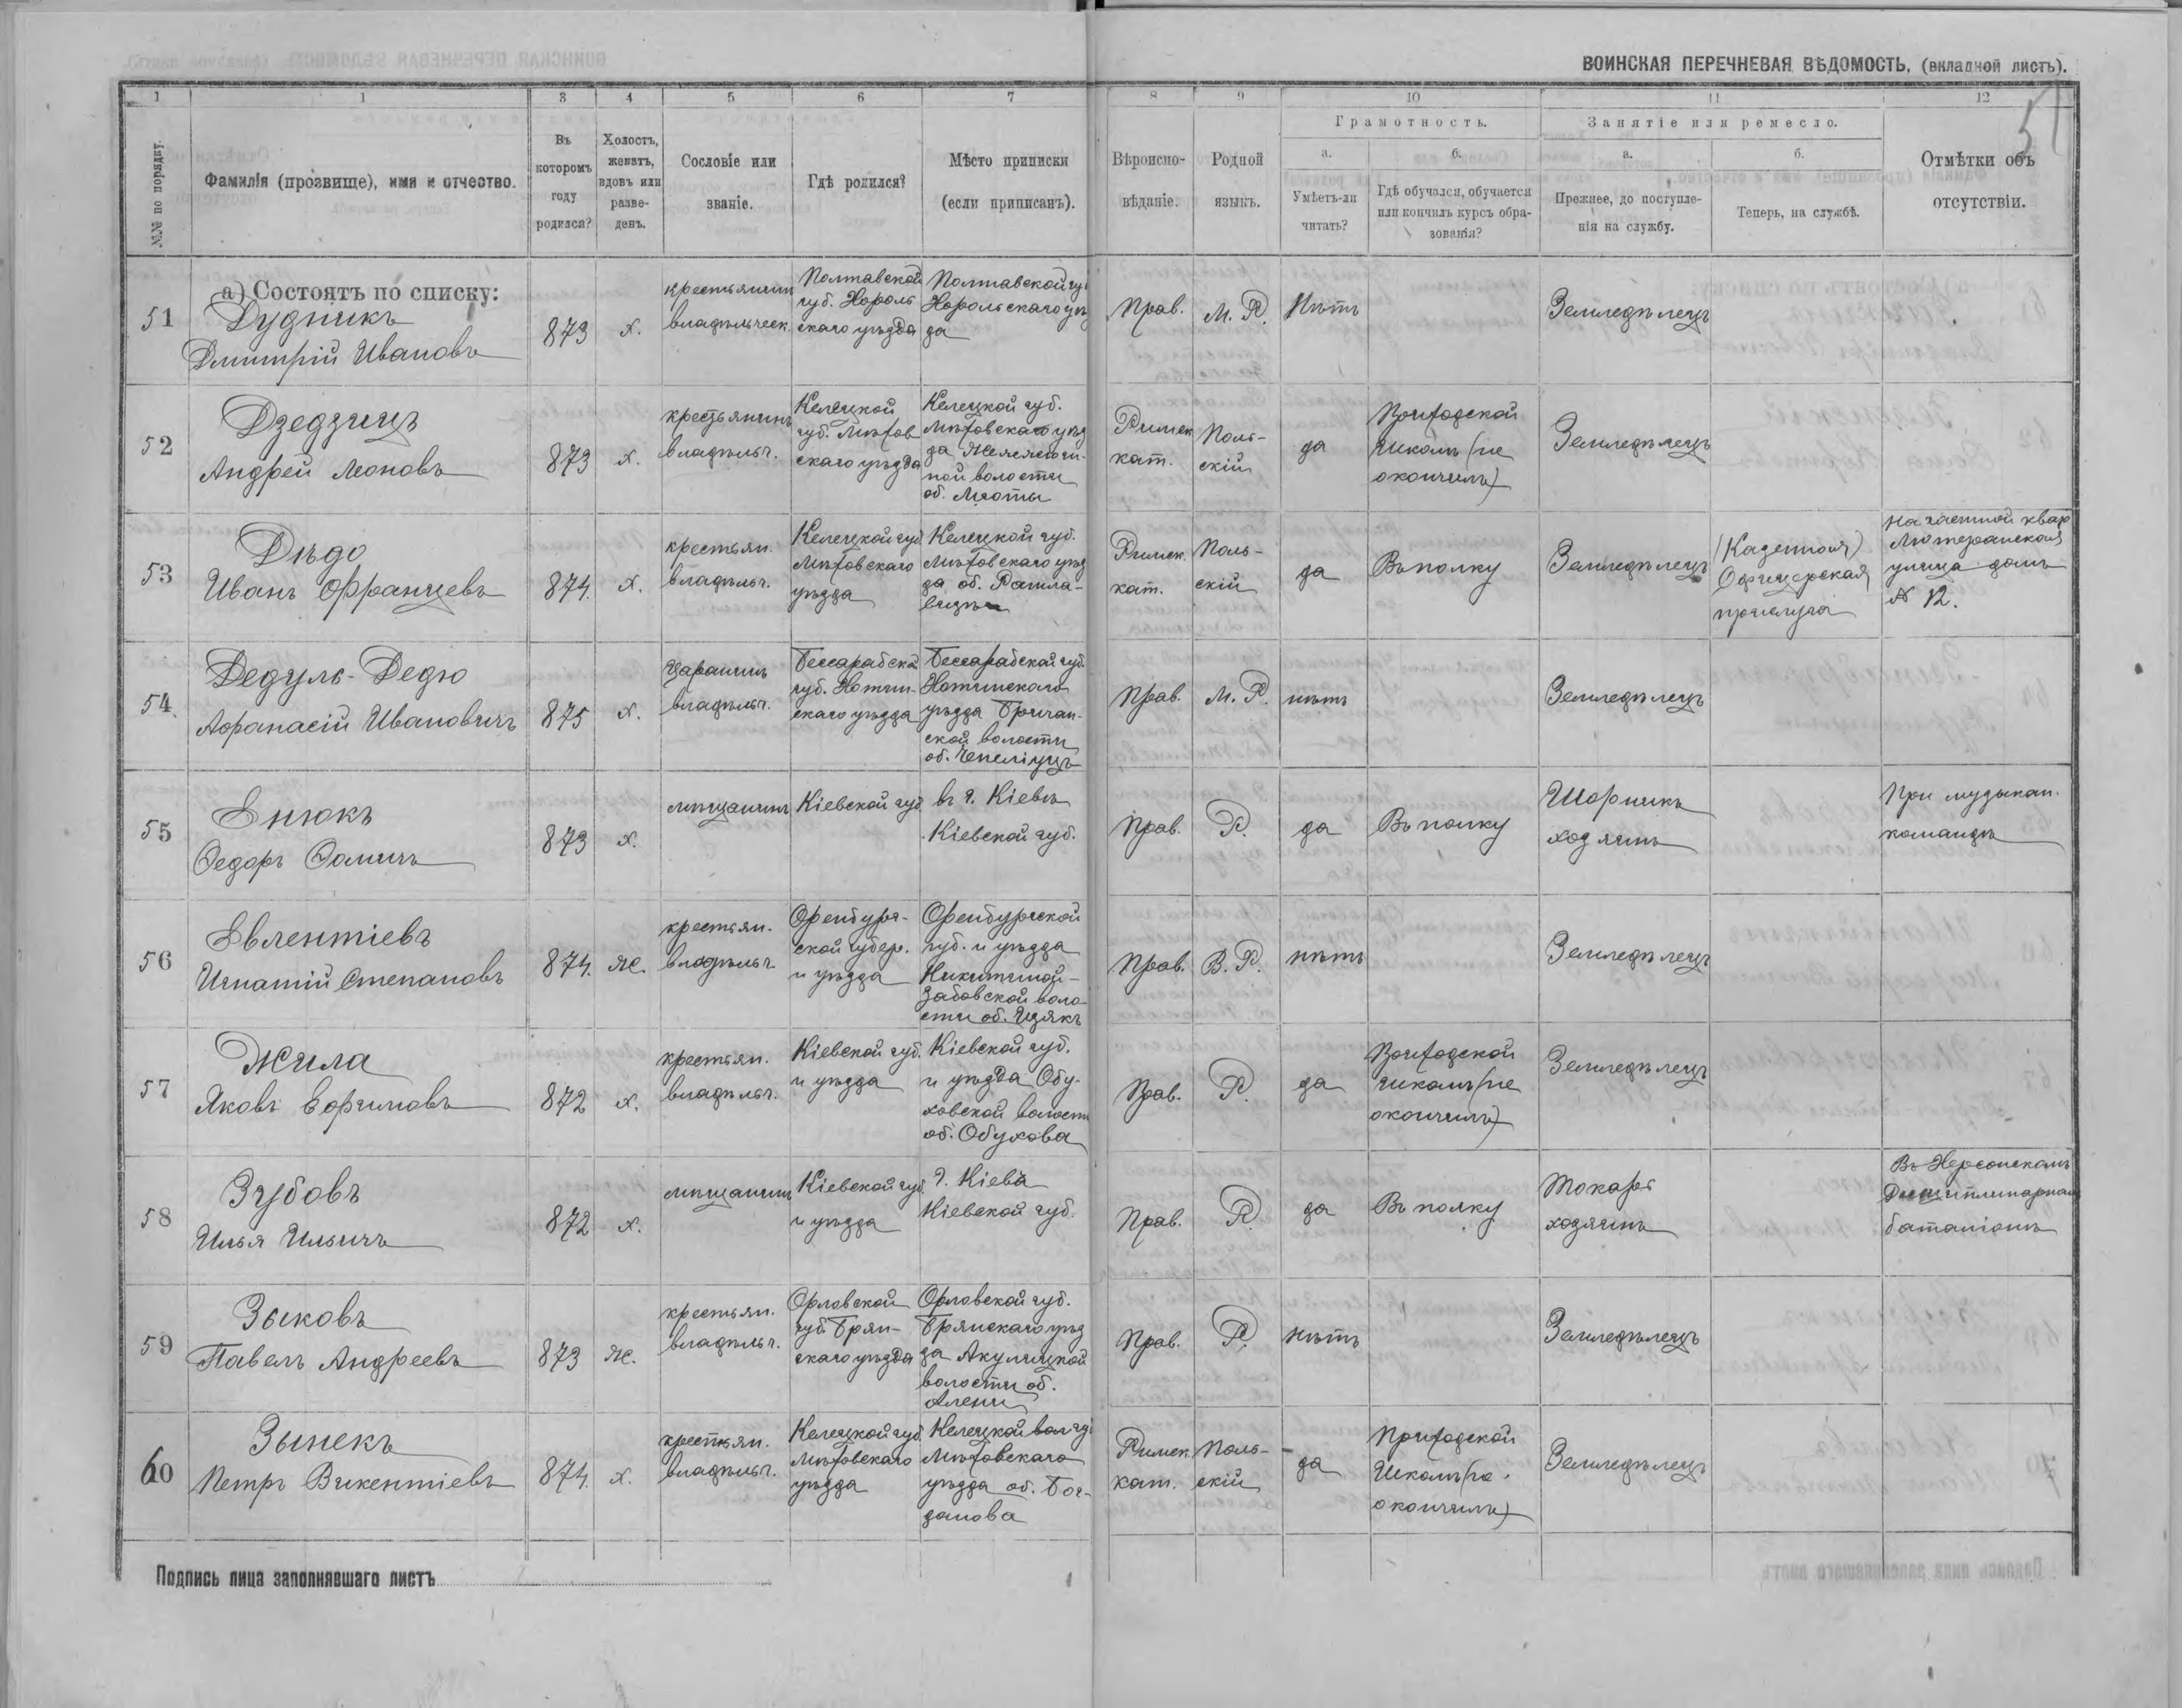 ВОИНСКАЯ ПЕРЕЧНЕВАЯ ВѢДОМОСТЬ, (вкладной листъ).
51
1 1 3 4 5 6 7 8 9 10 11 12
№№ по порядку.
Фамилія (прозвище), имя и отчество.
Въ которомъ году родился?
Холостъ, женатъ, вдовъ или разведенъ.
Сословіе или званіе.
Гдѣ родился?
Мѣсто приписки (если приписанъ).
Вѣроисповѣданіе.
Родной языкъ.
Грамотность.
а. Умѣетъ-ли читать?
б. Гдѣ обучался, обучается или кончилъ курсъ образованія?
Занятіе или ремесло.
а. Прежнее, до поступленія на службу.
б. Теперь, на службѣ.
Отмѣтки объ отсутствіи.
а) Состоятъ по списку:
51
Дудникъ
Дмитрій Ивановъ
873
х.
крестьянин
владѣльческ.
Полтавской
губ. Хороль
скаго уѣзда
Полтавской гу
Хорольскаго уѣз
да
Прав.
М. Р.
Нѣтъ
Земледѣлецъ
52
Дзедзицъ
Андрей Леоновъ
873
х.
крестьянинъ
владѣльч.
Келецкой
губ. Мѣхов
скаго уѣзда
Келецкой губ.
Мѣховскаго уѣз
да
ной волости
об.
Римск
кат.
Поль-
скій
да
Приходской
школѣ (не
окончилъ)
Земледѣлецъ
53
Дѣдо
Иванъ Францевъ
874.
х.
крестьян.
владѣльч.
Келецкой губ.
Мѣховскаго
уѣзда
Келецкой губ.
Мѣховскаго уѣз
да об. Рацла-
вицы
Римск.
кат.
Поль-
скій
да
Въ полку
Земледѣлецъ
(Казенная)
Офицерская
прислуга
На частной квар
Лютеранская
улица домъ
№ 12.
54.
Дедуль-Дедю
Афанасій Ивановичъ
875
х.
Царанинъ
владѣльч.
Бессарабской
губ. Хотин-
скаго уѣзда
Бессарабской губ.
Хотинскаго
уѣзда Бричан-
ской волости
об. Чепеліуцъ
Прав.
М. Р.
нѣтъ
Земледѣлецъ
55
Енюкъ
Ѳедоръ Ѳомичъ
873
х.
мѣщанинъ
Кіевской губ.
въ г. Кіевъ
Кіевской губ.
Прав.
Р.
да
Въ полку
Шорникъ
хозяинъ
При музыкан.
командѣ
56
Евлентіевъ
Игнатій Степановъ
874.
ж.
крестьян.
владѣльч
Оренбург-
ской губер.
и уѣзда
Оренбургской
губ. и уѣзда
Никитиной-
забовской воло-
сти об. Изякъ
Прав.
В. Р.
нѣтъ
Земледѣлецъ
57
Жила
Яковъ Ефимовъ
872
х.
крестьян.
владѣльч.
Кіевской губ.
и уѣзда
Кіевской губ.
и уѣзда Обу-
ховской волости
об. Обухова
Прав.
Р.
да
Приходской
школѣ (не
окончилъ)
Земледѣлецъ
58
Зубовъ
Илья Ильичъ
872
х.
мѣщанинъ
Кіевской губ.
и уѣзда
г. Кіева
Кіевской губ.
Прав.
Р.
да
Въ полку
Токарь
хозяинъ
Въ Херсонскомъ
Дисциплинарномъ
баталіонѣ
59
Зыковъ
Павелъ Андреевъ
873
ж.
крестьян.
владѣльч.
Орловской
губ. Брян-
скаго уѣзда
Орловской губ.
Брянскаго уѣз
да Акулицкой
волости об.
Алени
Прав.
Р.
нѣтъ
Земледѣлецъ
60
Зынекъ
Петръ Викентіевъ
874.
х.
крестьян.
владѣльч.
Келецкой губ.
Мѣховскаго
уѣзда
Келецкой
Мѣховскаго
уѣзда об. Бог-
данова
Римск.
кат.
Поль-
скій
да
Приходской
школѣ (не
окончилъ)
Земледѣлецъ
Подпись лица заполнявшаго листъ